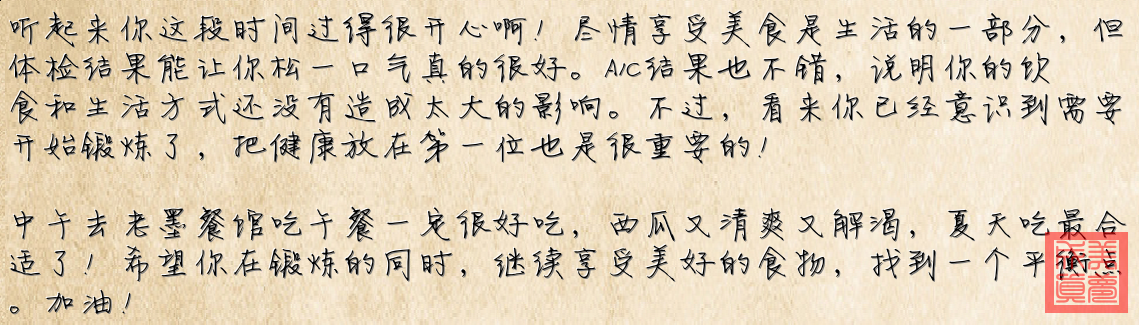 听起来你这段时间过得很开心啊！尽情享受美食是生活的一部分，但
体检结果能让你松一口气真的很好。A1C结果也不错，说明你的饮
食和生活方式还没有造成太大的影响。不过，看来你已经意识到需要
开始锻炼了，把健康放在第一位也是很重要的！
中午去老墨餐馆吃午餐一定很好吃，西瓜又清爽又解渴，夏天吃最合
适了！希望你在锻炼的同时，继续享受美好的食物，找到一个平衡点
。加油！